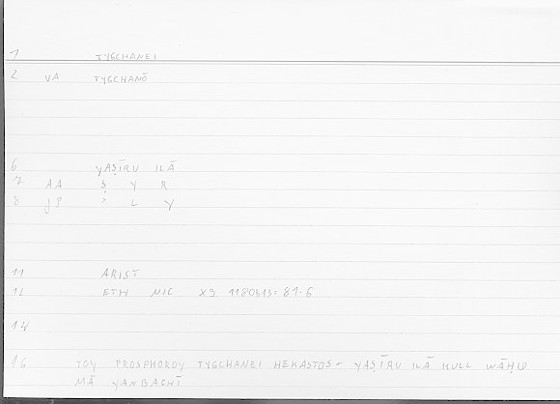 1 TYGCHANEI
2 VA TYGCHANŌ
6 YAṢĪRU ILĀ
7 AA Ṣ Y R
8 JP ʾ L Y
11 ARIST
12 ETH NIC X9 1180b13=81.6
14
16 TOY PROSPHOROY TYGCHANEI HEKASTOS = YAṢĪRU ILĀ KULL
MĀ YANBAGHĪ